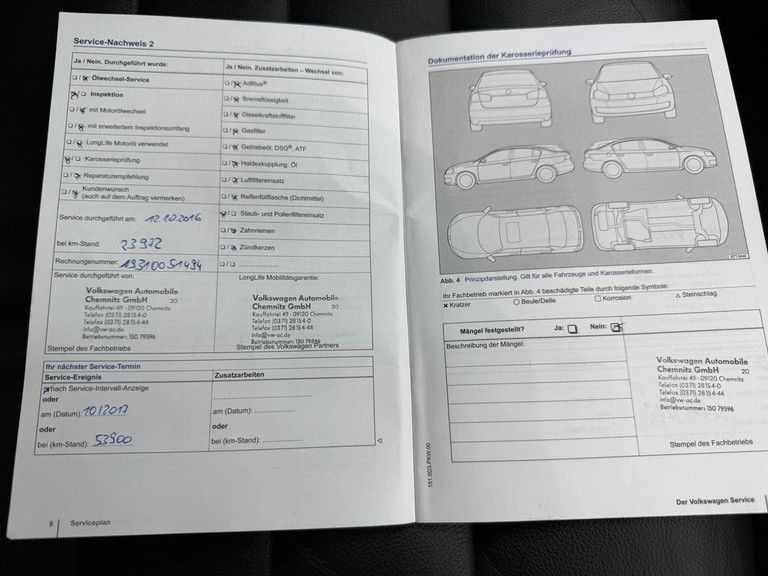 Service-Nachweis 2
Ja / Nein. Durchgeführt wurde:
Ölwechsel-Service
Inspektion
mit Motorölwechsel
mit erweitertem Inspektionsumfang
LongLife Motoröl verwendet
Karosserieprüfung
Reparaturempfehlung
Kundenwunsch
(auch auf dem Auftrag vermerken)
Service durchgeführt am: 12.10.2016
bei km-Stand: 23972
Rechnungsnummer: 19310051494
Service durchgeführt von:
Volkswagen Automobile
Chemnitz GmbH 20
Kauffahrtei 49 - 09120 Chemnitz
Telefon (0371) 28 15 4-0
Telefax (0371) 28 15 4-44
info@vw-ac.de
Betriebsnummer: 150 79596
Stempel des Fachbetriebs
Ja / Nein. Zusatzarbeiten – Wechsel von:
AdBlue®
Bremsflüssigkeit
Dieselkraftstofffilter
Gasfilter
Getriebeöl: DSG®, ATF
Haldexkupplung: Öl
Luftfiltereinsatz
Reifenfüllflasche (Dichtmittel)
Staub- und Pollenfiltereinsatz
Zahnriemen
Zündkerzen
LongLife Mobilitätsgarantie:
Volkswagen Automobile
Chemnitz GmbH 20
Kauffahrtei 49 - 09120 Chemnitz
Telefon (0371) 28 15 4-0
Telefax (0371) 28 15 4-44
info@vw-ac.de
Betriebsnummer: 150 79596
Stempel des Volkswagen Partners
Ihr nächster Service-Termin
Service-Ereignis
nach Service-Intervall-Anzeige
oder
am (Datum): 10/2017
oder
bei (km-Stand): 53900
Zusatzarbeiten
am (Datum):
oder
bei (km-Stand):
8 Serviceplan
Dokumentation der Karosserieprüfung
Abb. 4 Prinzipdarstellung. Gilt für alle Fahrzeuge und Karosserieformen.
Ihr Fachbetrieb markiert in Abb. 4 beschädigte Teile durch folgende Symbole:
Kratzer Beule/Delle Korrosion Steinschlag
Mängel festgestellt? Ja: Nein:
Beschreibung der Mängel:
Volkswagen Automobile
Chemnitz GmbH 20
Kauffahrtei 49 - 09120 Chemnitz
Telefon (0371) 28 15 4-0
Telefax (0371) 28 15 4-44
info@vw-ac.de
Betriebsnummer: 150 79596
Stempel des Fachbetriebs
151.5D3.PKW.00
Der Volkswagen Service